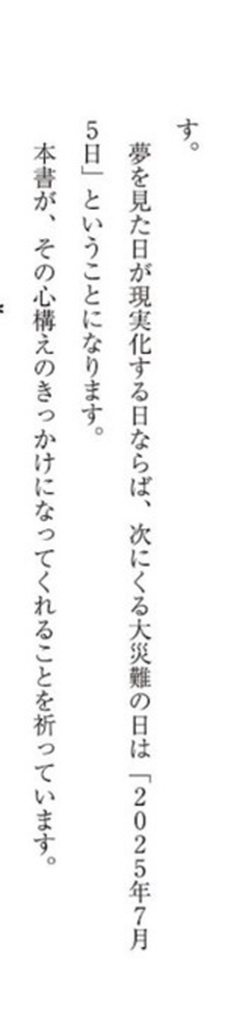 す。
夢を見た日が現実化する日ならば、次にくる大災難の日は「2025年7月
5日」ということになります。
本書が、その心構えのきっかけになってくれることを祈っています。